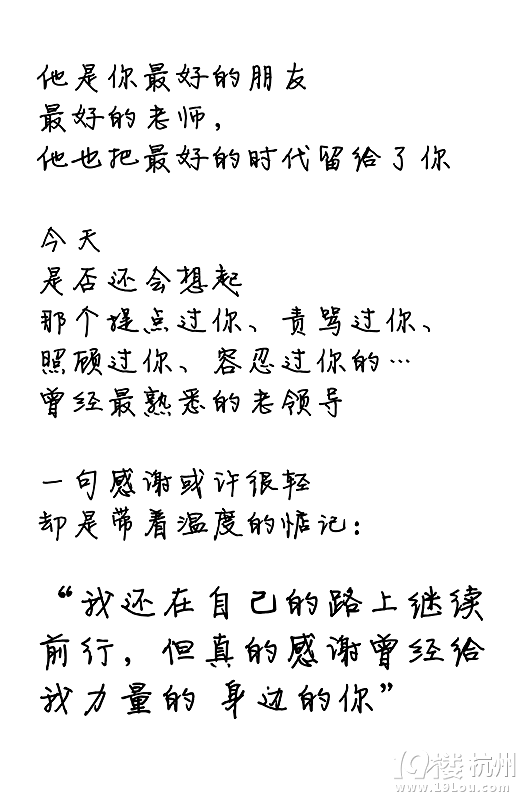 他是你最好的朋友
最好的老师，
他也把最好的时代留给了你
今天
是否还会想起
那个提点过你、责骂过你、
照顾过你、容忍过你的…
曾经最熟悉的老领导
一句感谢或许很轻
却是带着温度的惦记：
“我还在自己的路上继续
前行，但真的感谢曾经给
我力量的 身边的你”
19楼杭州
www.19lou.com